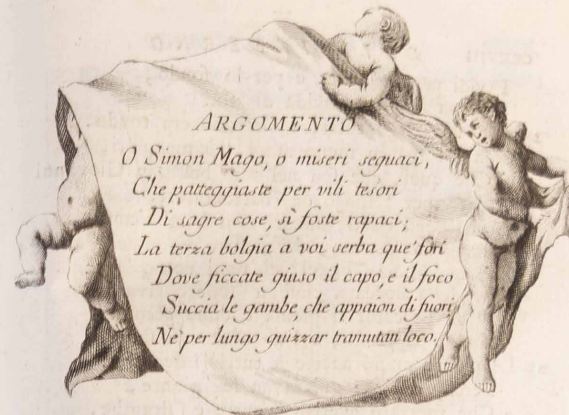 ARGOMENTO
O Simon Mago, o miseri seguaci,
Che patteggiaste per vili tesori
Di sagre cose, sì foste rapaci;
La terza bolgia a voi serba que' fori
Dove ficcate giuso il capo, e il foco
Succia le gambe, che appaion di fuori
Nè per lungo guizzar tramutan loco.